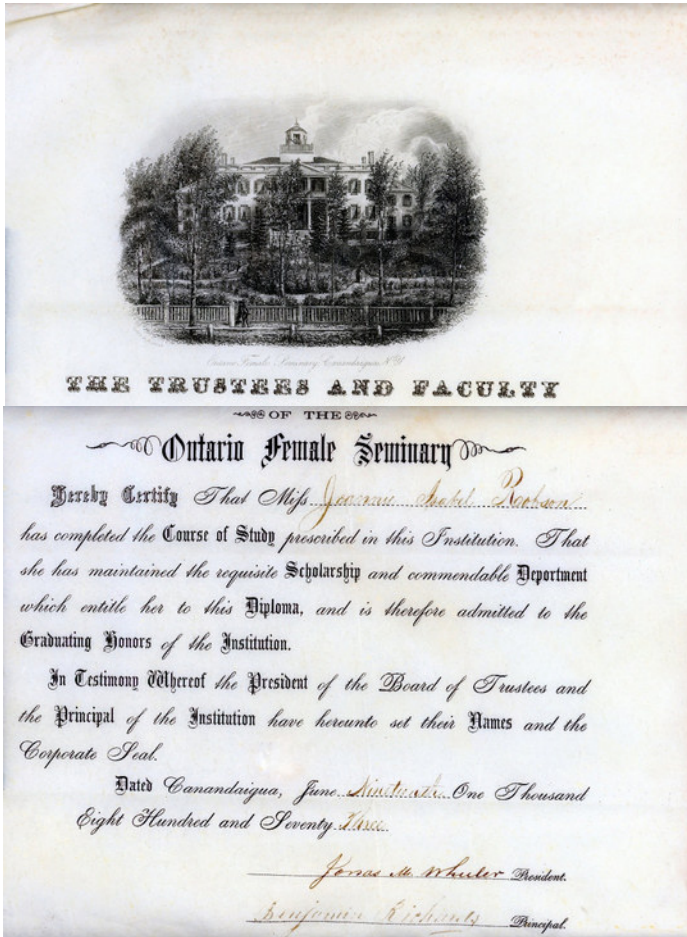 Ontario Female Seminary, Canandaigua, N.Y.
THE TRUSTEES AND FACULTY
OF THE
Ontario Female Seminary
Hereby Certify That Miss Isabel Robson
has completed the Course of Study prescribed in this Institution. That
she has maintained the requisite Scholarship and commendable Deportment
which entitle her to this Diploma, and is therefore admitted to the
Graduating Honors of the Institution.
In Testimony Whereof the President of the Board of Trustees and
the Principal of the Institution have hereunto set their Names and the
Corporate Seal.
Dated Canandaigua, June Nineteenth One Thousand
Eight Hundred and Seventy Three
Jonas M. Wheeler President.
Benjamin Richards Principal.